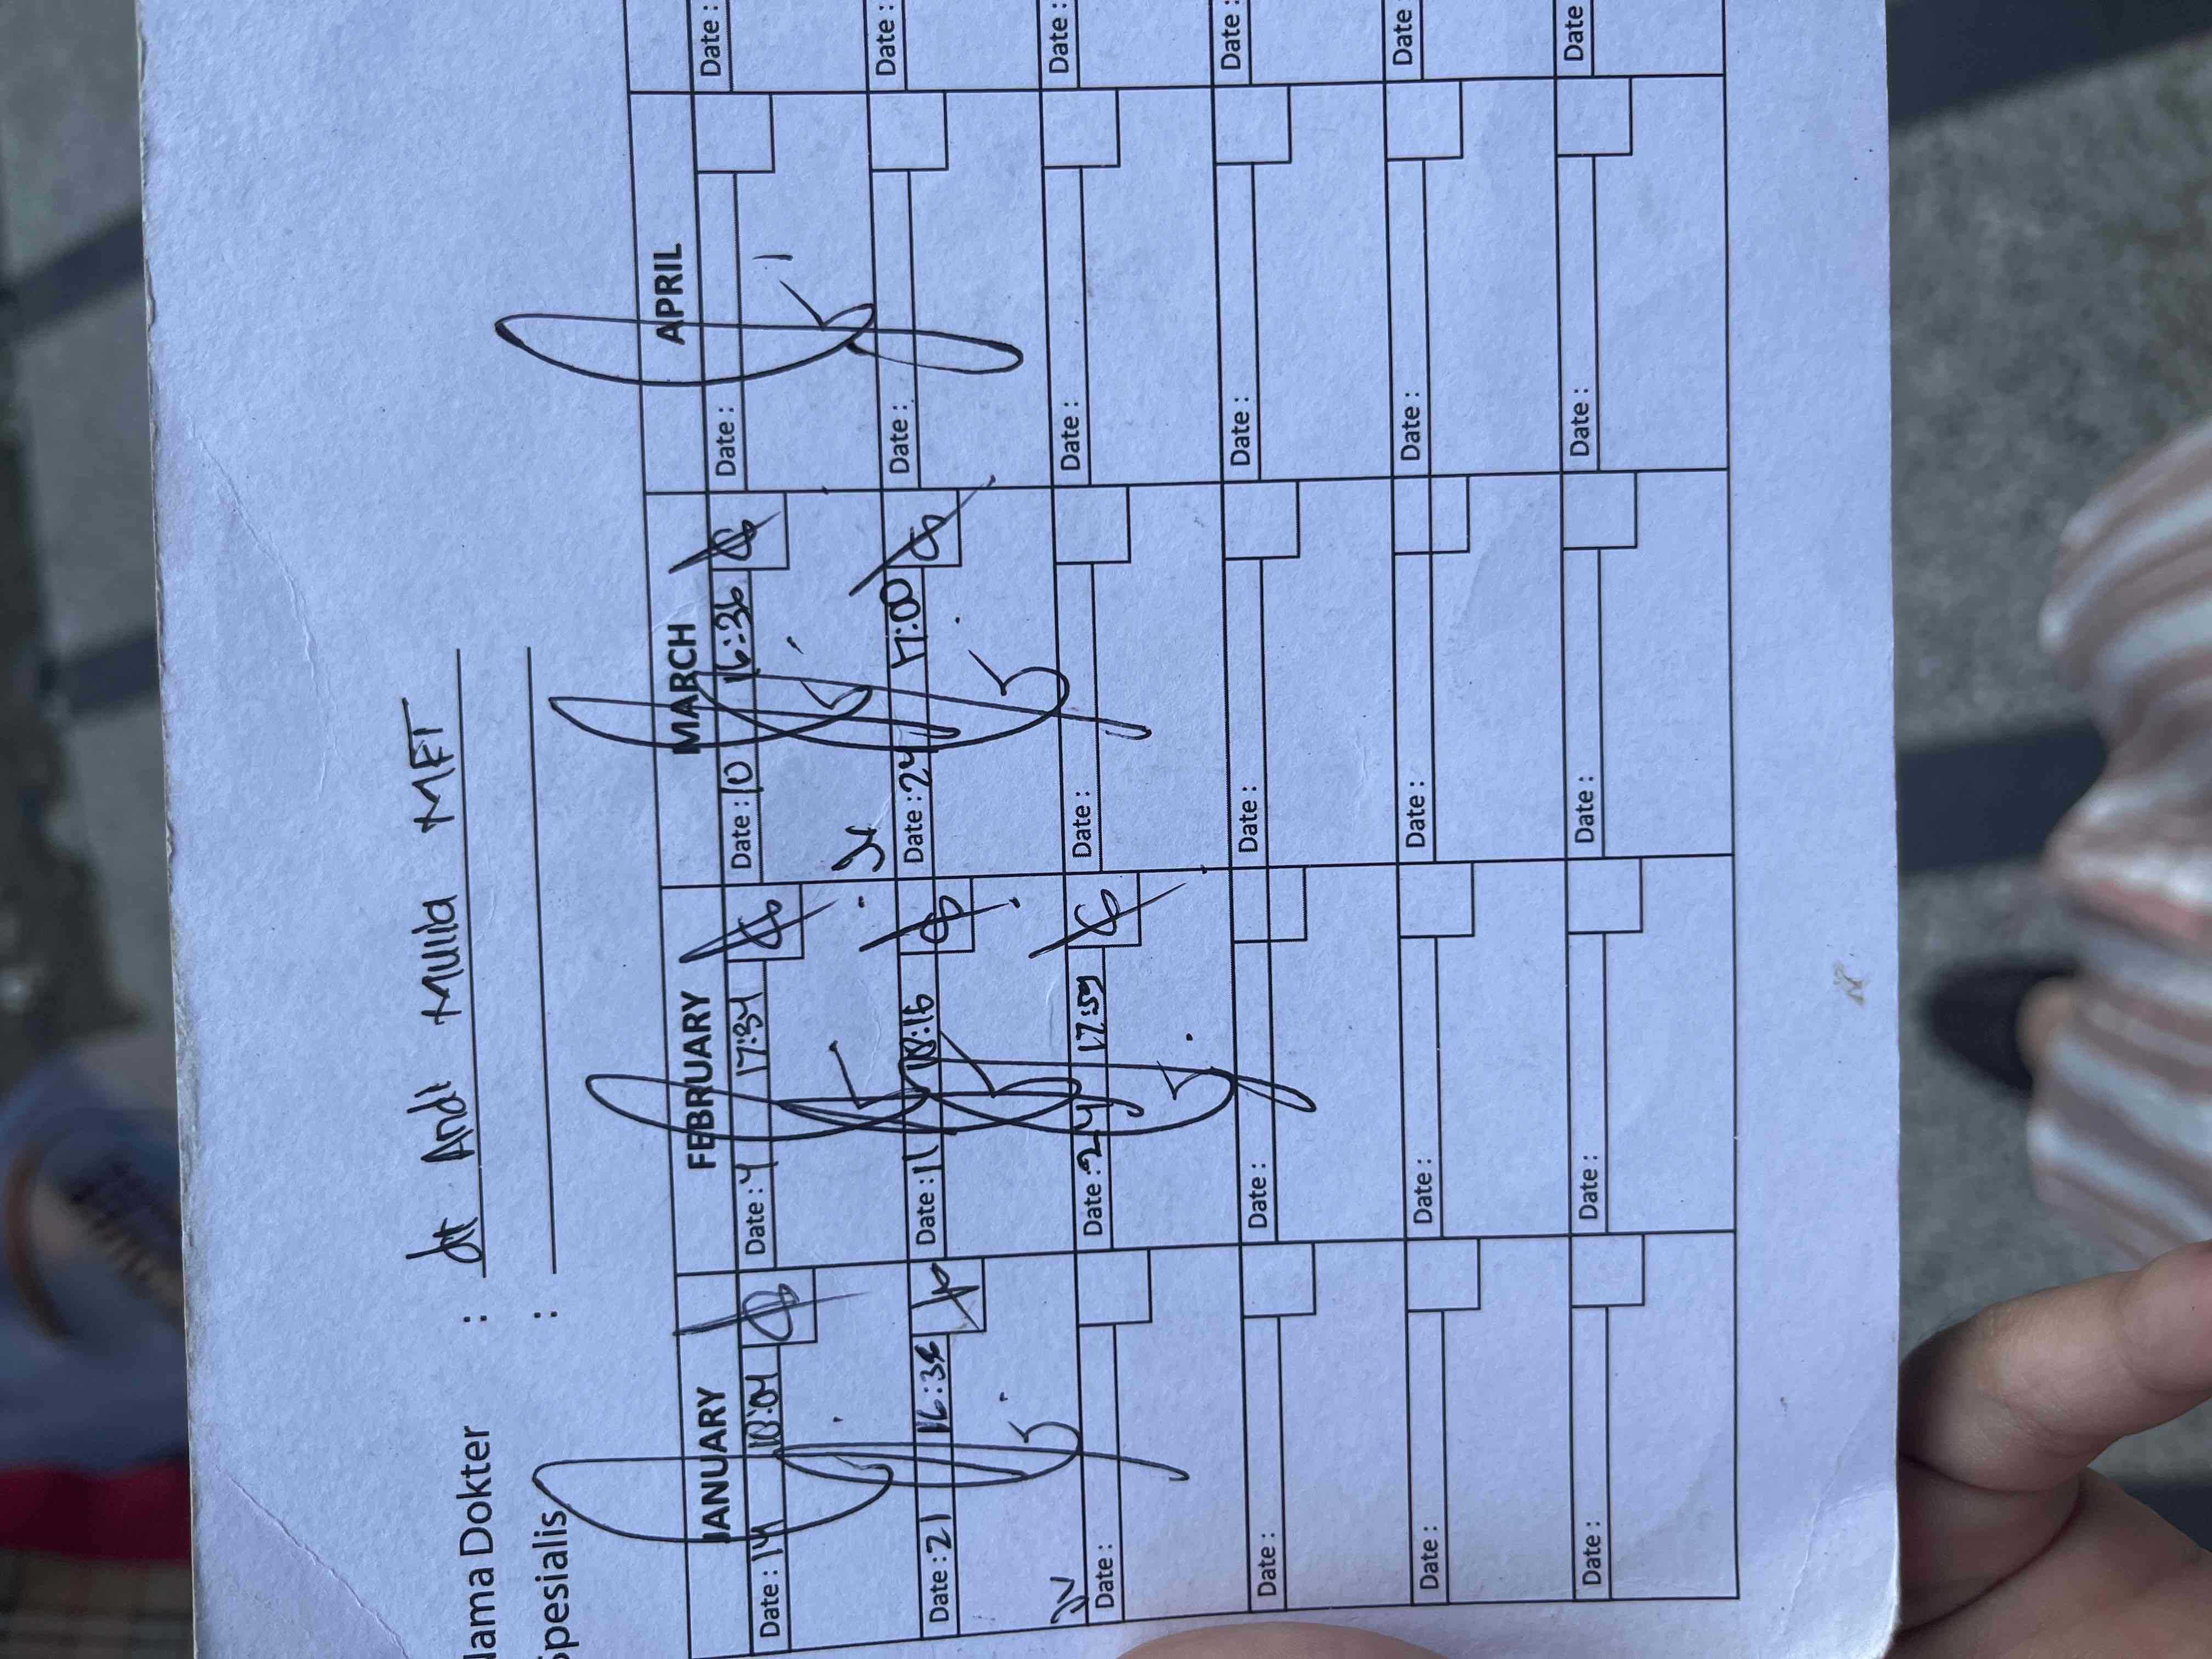 Nama Dokter : dr Andi Mulia MFT
Spesialis :
JANUARY FEBRUARY MARCH APRIL
Date : 14 18:04 Date : 4 17:34 Date : 10 16:36 Date : Date :
Date : 21 16:38 Date : 11 18:16 Date : 24 17:00 Date : Date :
Date : Date : 24 17:59 Date : Date : Date :
Date : Date : Date : Date : Date :
Date : Date : Date : Date : Date
Date : Date : Date : Date : Date